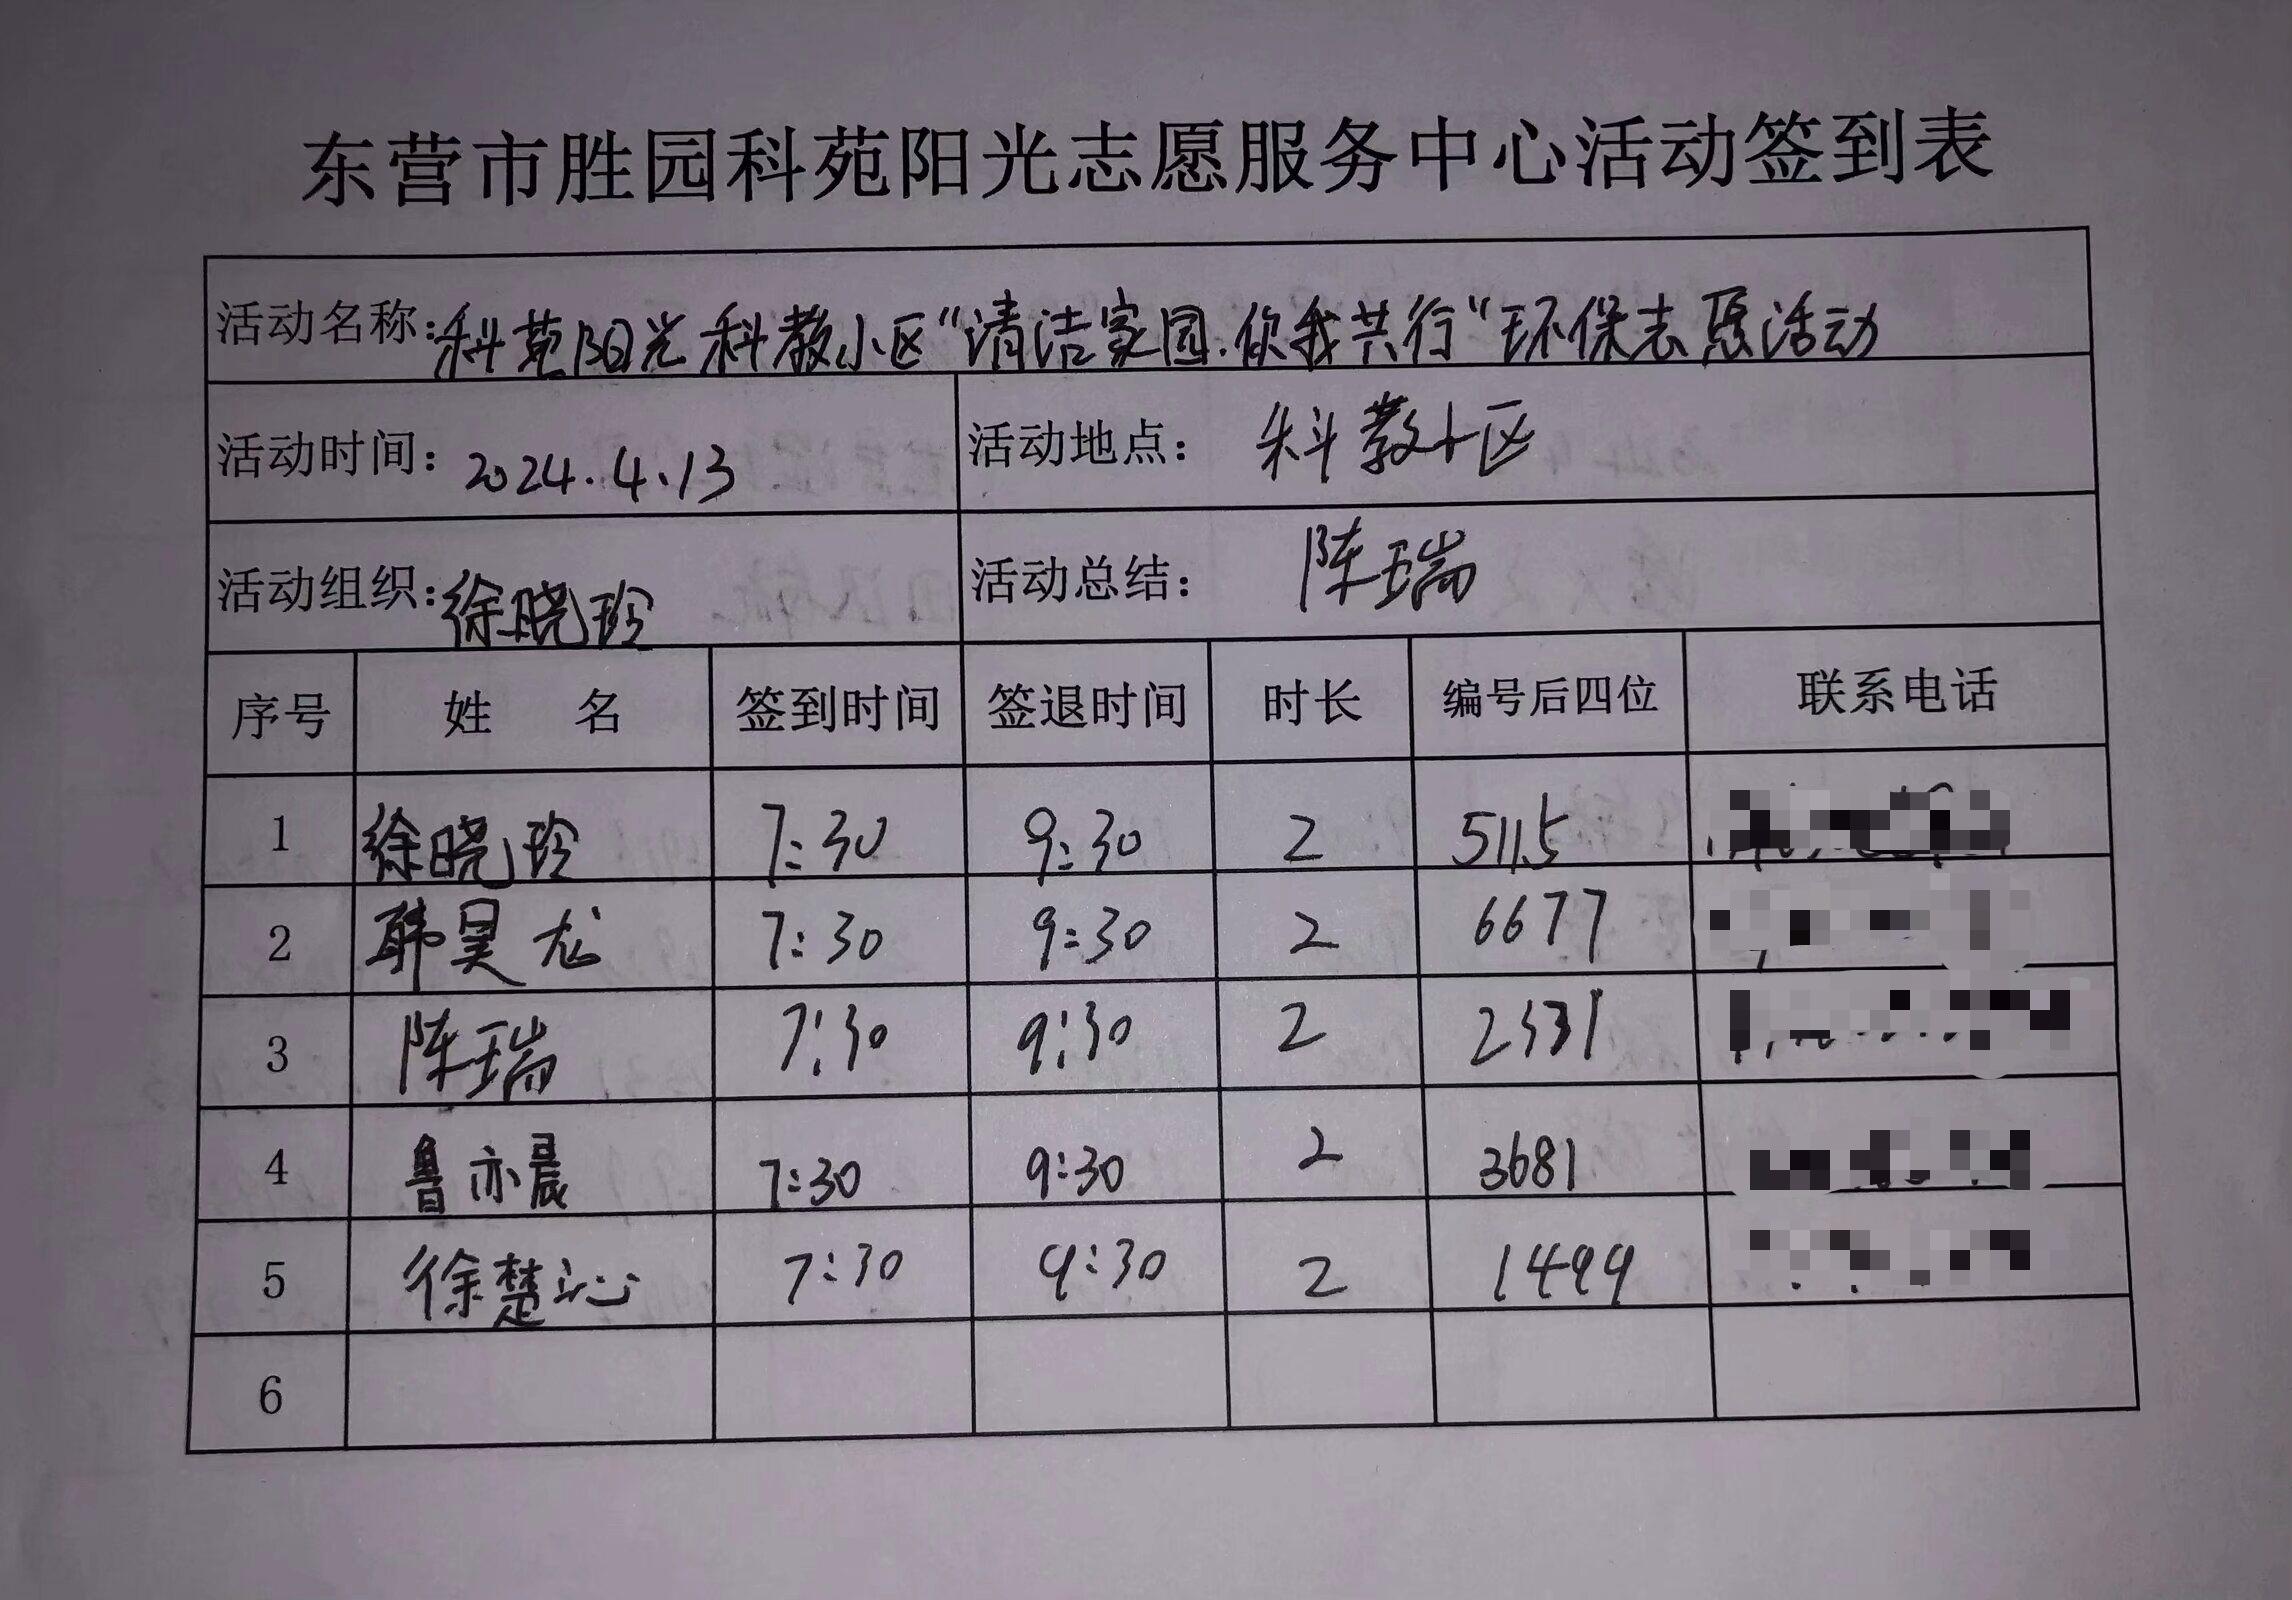 东营市胜园科苑阳光志愿服务中心活动签到表
活动名称：科苑阳光科教小区“清洁家园.你我共行”环保志愿活动
活动时间：2024.4.13 活动地点：科教小区
活动组织：徐晓玲 活动总结：陈瑞
序号 姓 名 签到时间 签退时间 时长 编号后四位 联系电话
1 徐晓玲 7:30 9:30 2 5115
2 韩昊龙 7:30 9:30 2 6677
3 陈瑞 7:30 9:30 2 2331
4 鲁亦晨 7:30 9:30 2 3681
5 徐楚沁 7:30 9:30 2 1499
6